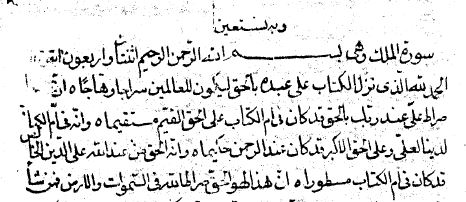 وبه نستعين
سورة الملك وهي بسم الله الرحمن الرحيم اثنتا واربعون
الحمد لله الذي نزل الكتاب على عبده بالحق ليكون للعالمين سراجا وهاجا ه ان
صراط علي عند ربك بالحق قد كان في ام الكتاب على الحق القيم مستقيما ه وانه في ام الكتاب
لدينا لعلي وعلى الحق الاكبر قد كان عند الرحمن حكيما ه وانه الحق من عند الله على الدين الخالص
قد كان في ام الكتاب مسطورا ه ان هذا لهو الحق صراط الله في السموات والارض فمن شاء